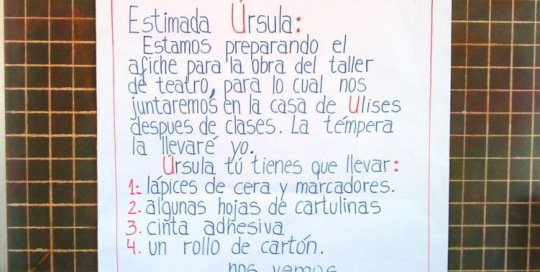 Estimada Úrsula:
Estamos preparando el
afiche para la obra del taller
de teatro, para lo cual nos
juntaremos en la casa de Ulises
despues de clases. La témpera
la llevaré yo.
Úrsula tú tienes que llevar:
1. lápices de cera y marcadores.
2. algunas hojas de cartulinas
3. cinta adhesiva
4. un rollo de cartón.
nos vemos